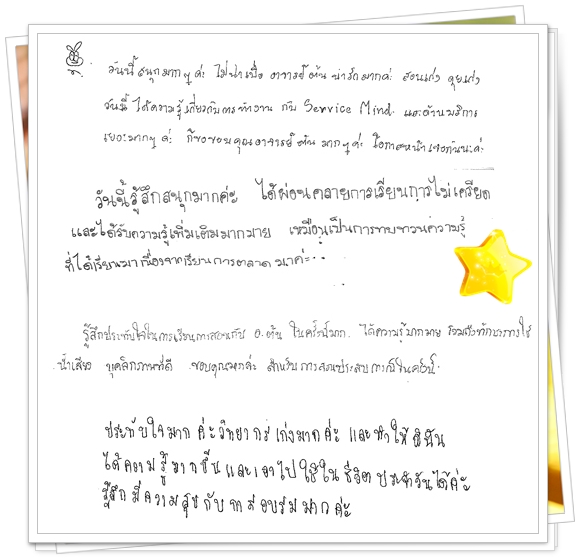 วันนี้สนุกมากๆค่ะ ไม่น่าเบื่อ อาจารย์ต้นน่ารักมากค่ะ สอนเก่ง คุยเก่ง
วันนี้ ได้ความรู้เกี่ยวกับการทำงาน กับ Service Mind และด้านบริการ
เยอะมากๆ ค่ะ ก็ขอขอบคุณอาจารย์ต้น มากๆค่ะ โอกาสหน้าเจอกันนะค่ะ
วันนี้รู้สึกสนุกมากค่ะ ได้ผ่อนคลายการเรียนการไม่เครียด
และได้รับความรู้เพิ่มเติมมากมาย เหมือนเป็นการทบทวนความรู้
ที่ได้เรียนมา เนื่องจากเรียนการตลาด มาค่ะ...
รู้สึกประทับใจในการเรียนการสอนกับ อ.ต้น ในครั้งนี้มาก ได้ความรู้มากมาย รวมถึงทักษะการใช้
น้ำเสียง บุคลิกภาพที่ดี ขอบคุณมากค่ะ สำหรับการสอนประสบการณ์ในครั้งนี้
ประทับใจมาก ค่ะวิทยากร เก่งมากค่ะ และทำให้ดิฉัน
ได้ความรู้มากขึ้นและเอาไปใช้ในชีวิตประจำวันได้ค่ะ
รู้สึกมีความสุขกับการอบรมมากค่ะ